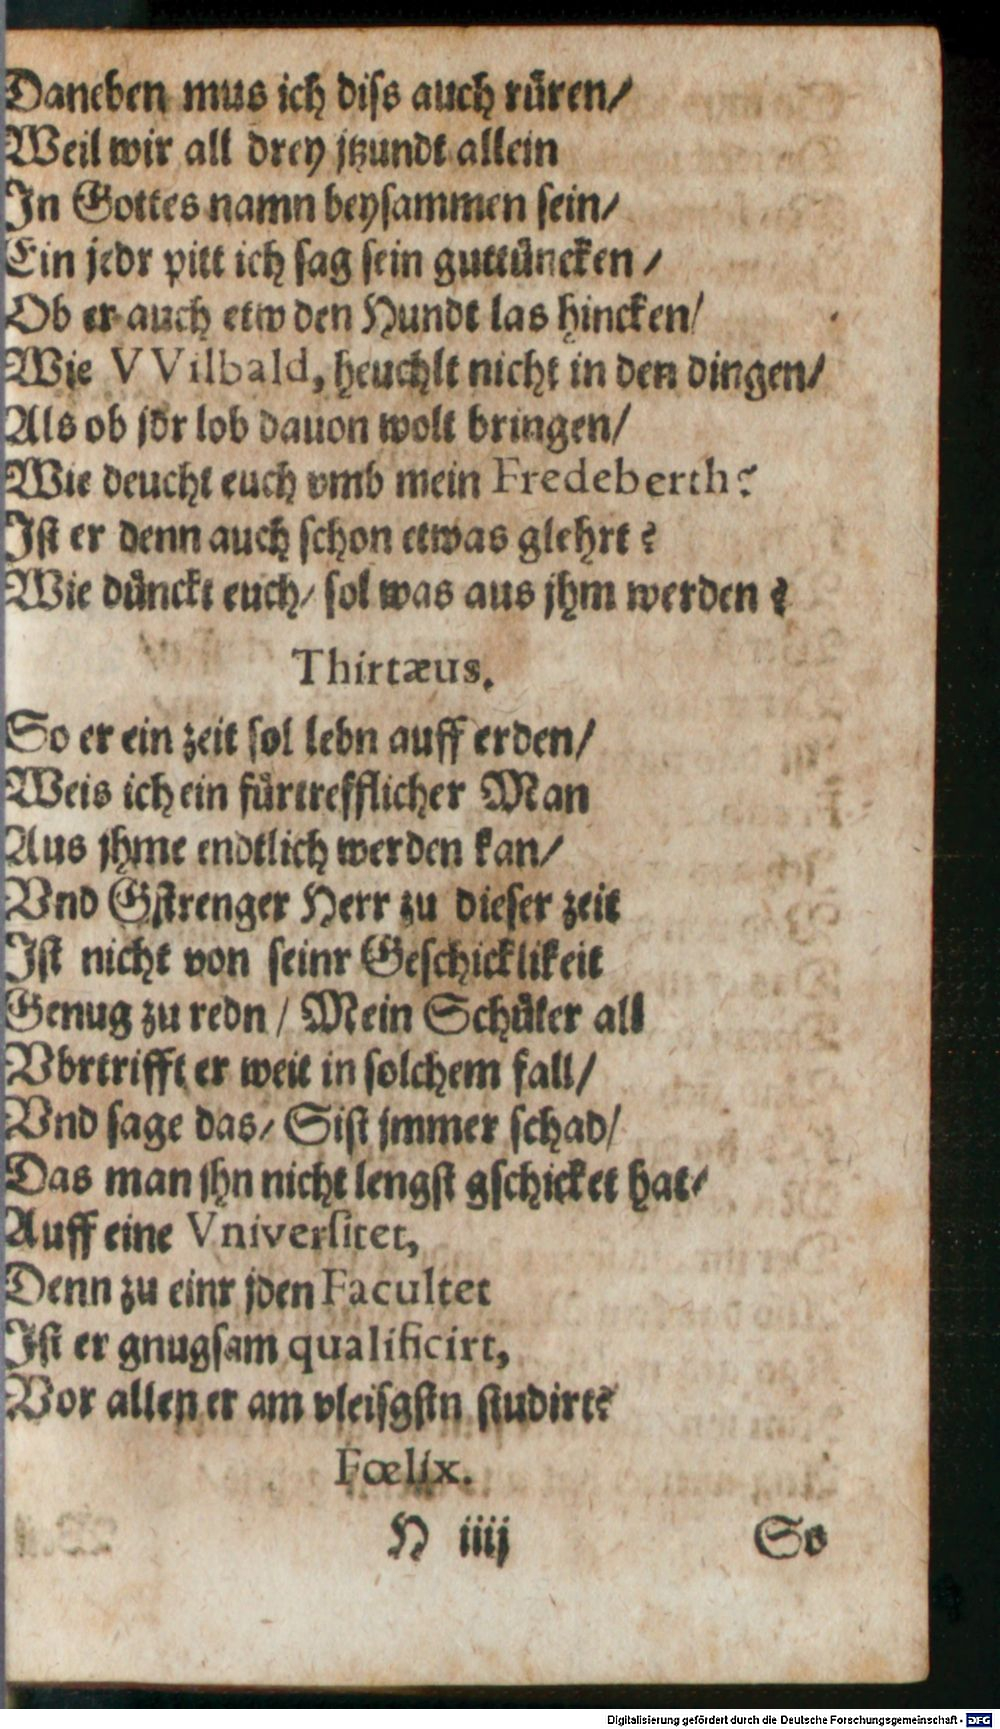 Daneben mus ich diſs auch rüren/
Weil wir all drey jtzundt allein
In Gottes namn beyſammen ſein/
Ein jedr pitt ich ſag ſein guttüncken /
Ob er auch etw den Hundt las hincken/
Wie VVilbald, heuchlt nicht in den dingen/
Als ob jdr lob dauon wolt bringen/
Wie deucht euch vmb mein Fredeberth?
Iſt er denn auch ſchon etwas glehrt?
Wie dünckt euch/ ſol was aus jhm werden?
Thirtæus.
So er ein zeit ſol lebn auff erden/
Weis ich ein fürtrefflicher Man
Aus jhme endtlich werden kan/
Vnd Gſtrenger Herr zu dieſer zeit
Iſt nicht von ſeinr Geſchicklikeit
Genug zu redn / Mein Schüler all
Vbrtrifft er weit in ſolchem fall/
Vnd ſage das/ Siſt jmmer ſchad/
Das man jhn nicht lengſt gſchicket hat/
Auff eine Vniverſitet,
Denn zu einr jden Facultet
Iſt er gnugſam qualificirt,
Vor allen er am vleiſgſtn ſtudirt?
Fœlix.
H iiij So
Digitalisierung gefördert durch die Deutsche Forschungsgemeinschaft - DFG